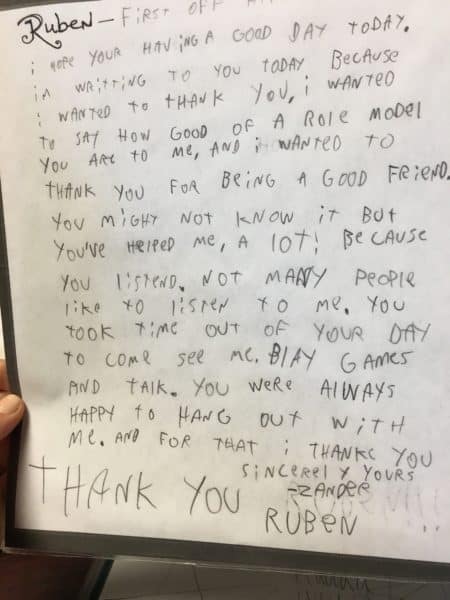 Ruben - First off
i hope your having a good day today.
im writting to you today because
i wanted to thank you, i wanted
to say how good of a role model
you are to me, and i wanted to
thank you for being a good friend.
you might not know it but
you've helped me, a lot! because
you listend. Not many people
like to listen to me. you
took time out of your day
to come see me. Play games
and talk. you were always
happy to hang out with
me. and for that i thankc you
sincerely yours
Zander
Thank you
Ruben